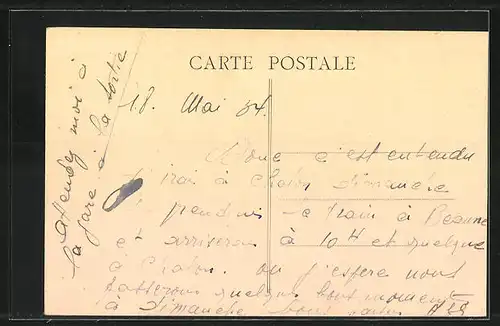 CARTE POSTALE
18 Mai 34.
Donc c'est entendu
J'irai à Chalon dimanche
je prendrais le train à Beaune
et arriverai à 10H et quelque
à Chalon. où j'espère nous
passerons quelques bons moments
à dimanche bons
attendez moi à
la gare à la sortie